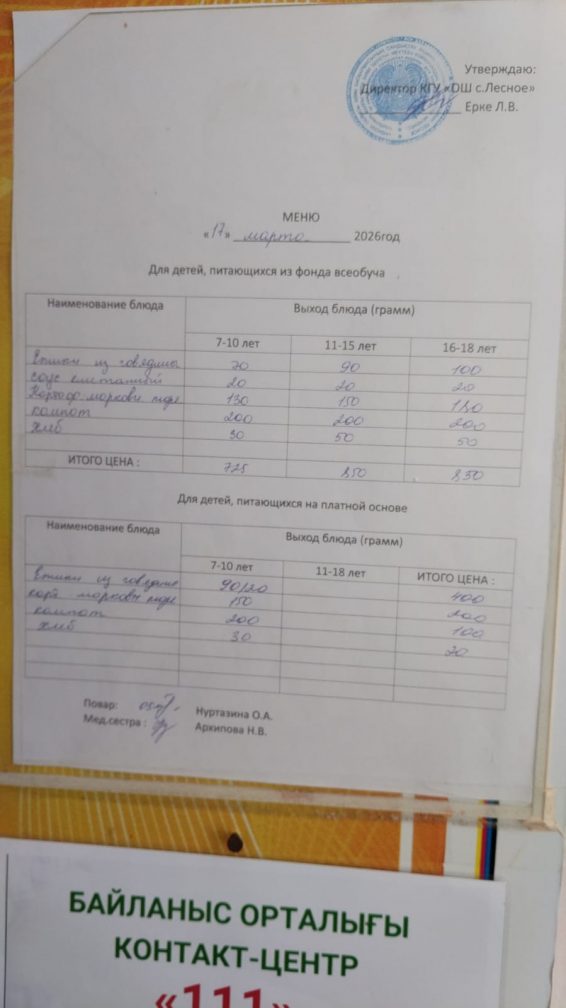 Утверждаю:
Директор КГУ «ОШ с.Лесное»
Ерке Л.В.
МЕНЮ
«17» марта 2026год
Для детей, питающихся из фонда всеобуча
Наименование блюда Выход блюда (грамм)
7-10 лет 11-15 лет 16-18 лет
из говядины 70 90 100
соус сметанный 20 20 20
морковн пюре 130 150 180
компот 200 200 200
хлеб 30 50 50
ИТОГО ЦЕНА : 725 850 850
Для детей, питающихся на платной основе
Наименование блюда Выход блюда (грамм)
7-10 лет 11-18 лет ИТОГО ЦЕНА :
из говядины 90/20 400
карт морковн пюре 150 200
компот 200 100
хлеб 30 20
Повар: Нуртазина О.А.
Мед.сестра : Архипова Н.В.
БАЙЛАНЫС ОРТАЛЫҒЫ
КОНТАКТ-ЦЕНТР
«111»